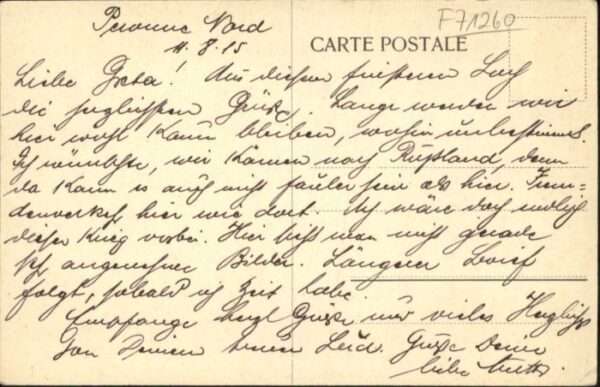 F71260
Peronne Nord
11.8.15
CARTE POSTALE
Liebe Greta! Aus diesem finsteren Loch
die herzlichsten Grüße. Lange werden wir
hier wohl kaum bleiben, wohin unbestimmt.
Ich wünschte, wir kämen nach Rußland, denn
da kann es auch nicht fauler sein als hier. Frem-
denverkehr hier wie dort. Ich wäre doch endlich
dieser Krieg vorbei. Hier sieht man nicht gerade
sehr angenehme Bilder. Längerer Brief
folgt, sobald ich Zeit habe
Empfange herzl Grüße und vieles Herzliche
von Deinem treuen Grüße Deine
liebe Mutter